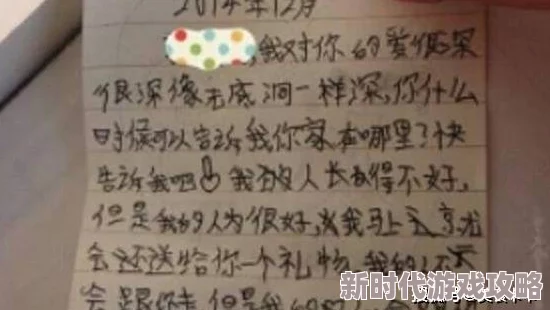 2014年12月
,我对你的爱很深
很深像无底洞一样深,你什么
时候可以告诉我你家在哪里了快
告诉我吧 我的人长的得不好,
但是我的人为很好,我马上
会还送给你一个礼物,我的
会跟你走 但是我
新时代游戏攻略